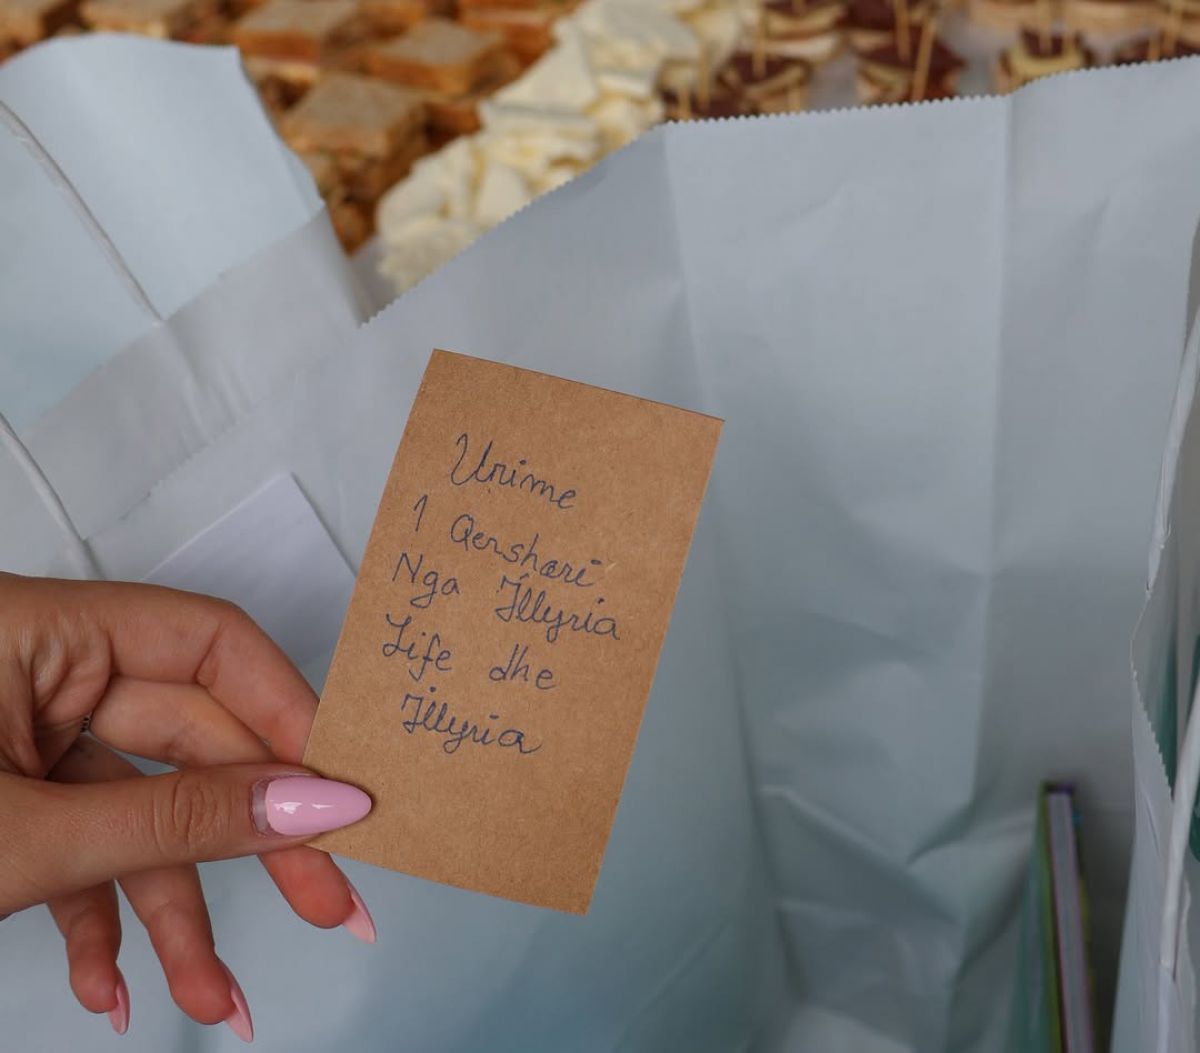 Urime
1 Qershori
Nga Illyria
Life dhe
Illyria